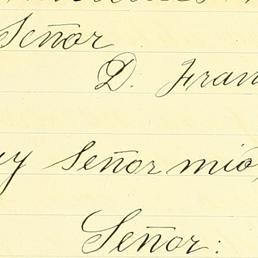 Señor
D. Fran
y Señor mío,
Señor: